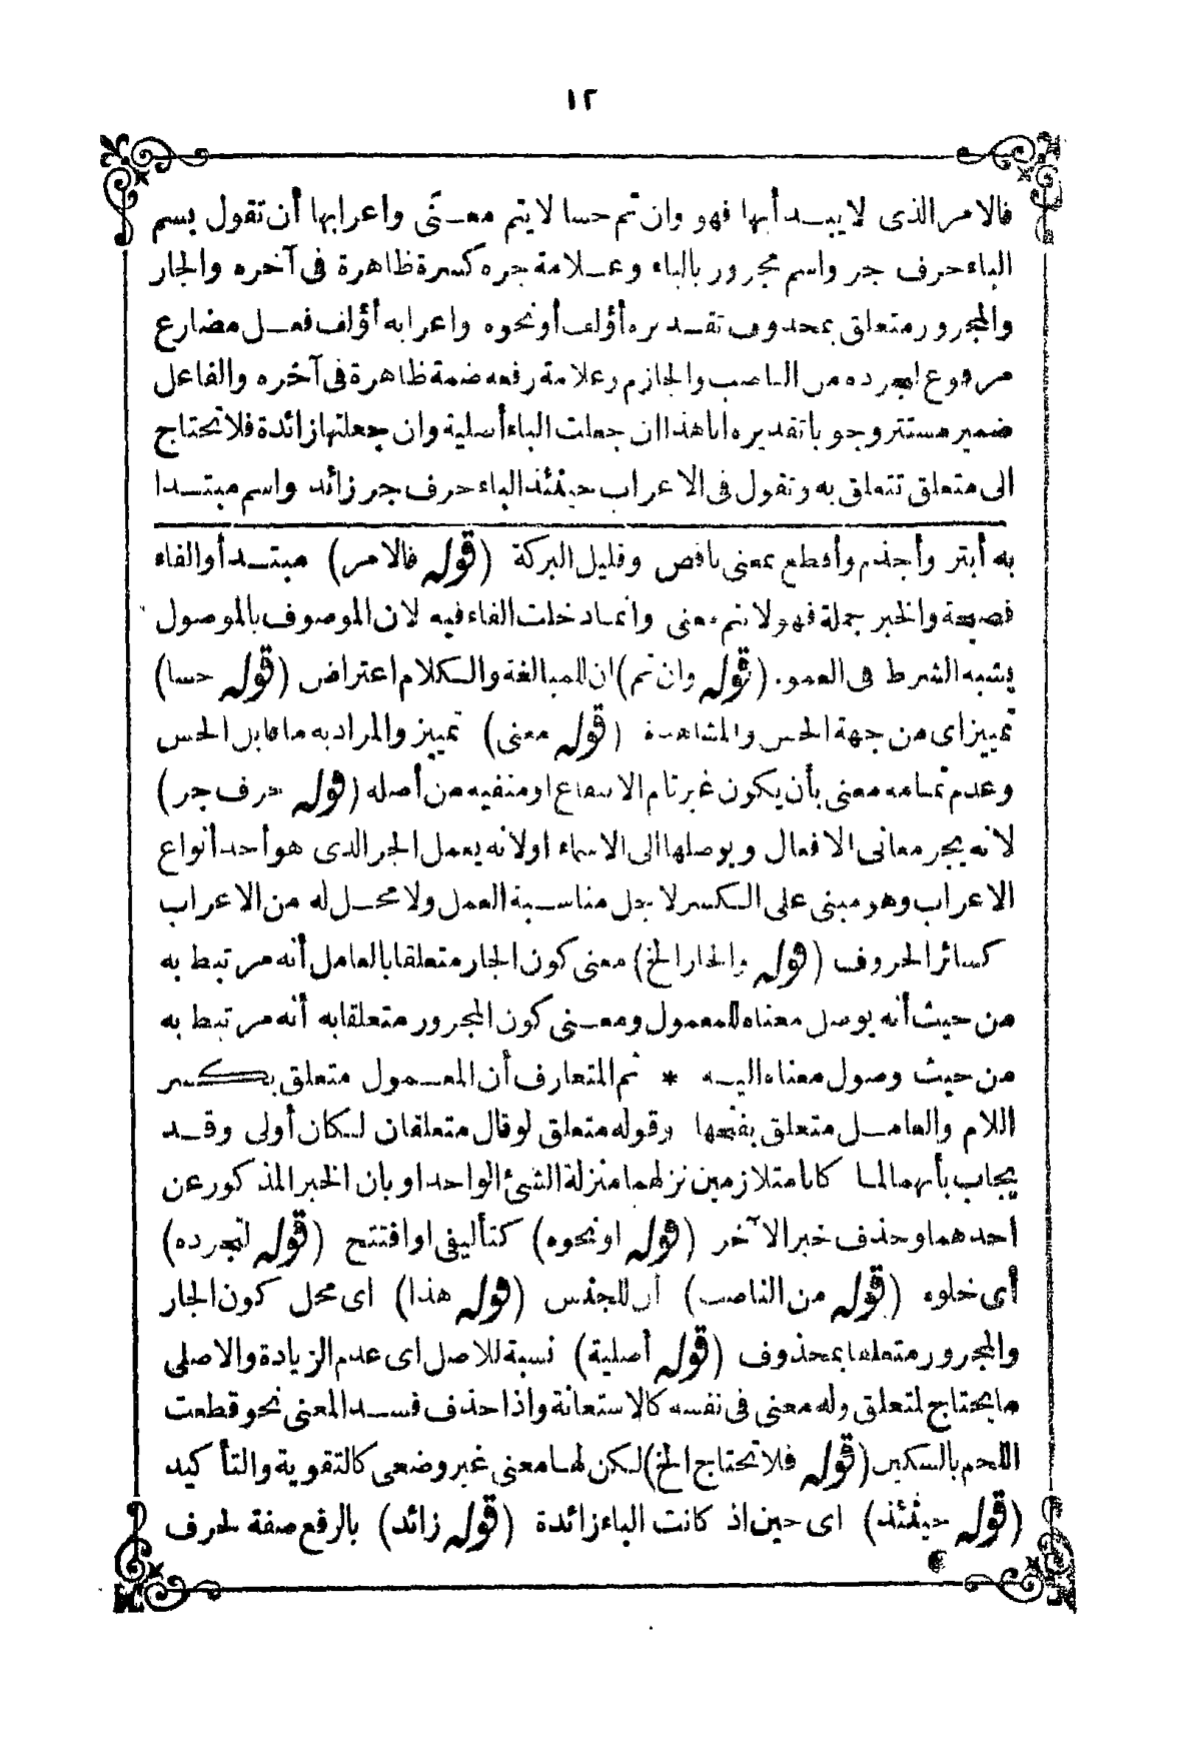 ١٢
فالامر الذى لا يبدأ بها فهو وان تم حسا لا يتم معنًى واعرابها أن تقول بسم
الباء حرف جر واسم مجرور بالباء وعلامة جره كسرة ظاهرة فى آخره والجار
والمجرور متعلق بمحذوف تقديره أؤلف أو نحوه واعرابه أؤلف فعل مضارع
مرفوع لتجرده من الناصب والجازم وعلامة رفعه ضمة ظاهرة فى آخره والفاعل
ضمير مستتر وجوبا تقديره أنا هذا ان جعلت الباء أصلية وان جعلتها زائدة فلا تحتاج
الى متعلق تتعلق به وتقول فى الاعراب حينئذ الباء حرف جر زائد واسم مبتدا
به أبتر وأجذم وأقطع بمعنى ناقص وقليل البركة (قوله فالامر) مبتدأ والفاء
فصيحة والخبر جملة فهو لا تم معنى وانما دخلت الفاء فيه لان الموصوف بالموصول
يشبه الشرط فى العموم (قوله وان تم) ان للمبالغة والكلام اعتراض (قوله حسا)
تمييز اى من جهة الحس والمشاهدة (قوله معنى) تمييز والمراد به ما قابل الحس
وعدم تمامه معنى بأن يكون غير تام الانتفاع او منفيه من أصله (قوله حرف جر)
لانه يجر معانى الافعال ويوصلها الى الاسماء او لانه يعمل الجر الذى هو أحد أنواع
الاعراب وهو مبنى على الكسر لاجل مناسبة العمل ولا محل له من الاعراب
كسائر الحروف (قوله والجار الخ) معنى كون الجار متعلقا بالعامل أنه مرتبط به
من حيث أنه يوصل معناه للمعمول ومعنى كون المجرور متعلقا به أنه مرتبط به
من حيث وصول معناه اليه * ثم المتعارف أن المعمول متعلق بكسر
اللام والعامل متعلق بفتحها وقوله متعلق لو قال متعلقان لكان أولى وقد
يجاب بأنهما لما كانا متلازمين نزلهما منزلة الشئ الواحد او بان الخبر المذكور عن
احدهما وحذف خبر الآخر (قوله او نحوه) كتأليفى او افتتح (قوله لتجرده)
أى خلوه (قوله من الناصب) أل للجنس (قوله هذا) اى محل كون الجار
والمجرور متعلقا بمحذوف (قوله أصلية) نسبة للاصل اى عدم الزيادة والاصلى
ما يحتاج لتعلق وله معنى فى نفسه كالاستعانة واذا حذف فسد المعنى نحو قطعت
اللحم بالسكين (قوله فلا تحتاج الخ) لكن لها معنى غير وضعى كالتقوية والتأكيد
(قوله حينئذ) اى حين اذ كانت الباء زائدة (قوله زائد) بالرفع صفة لحرف